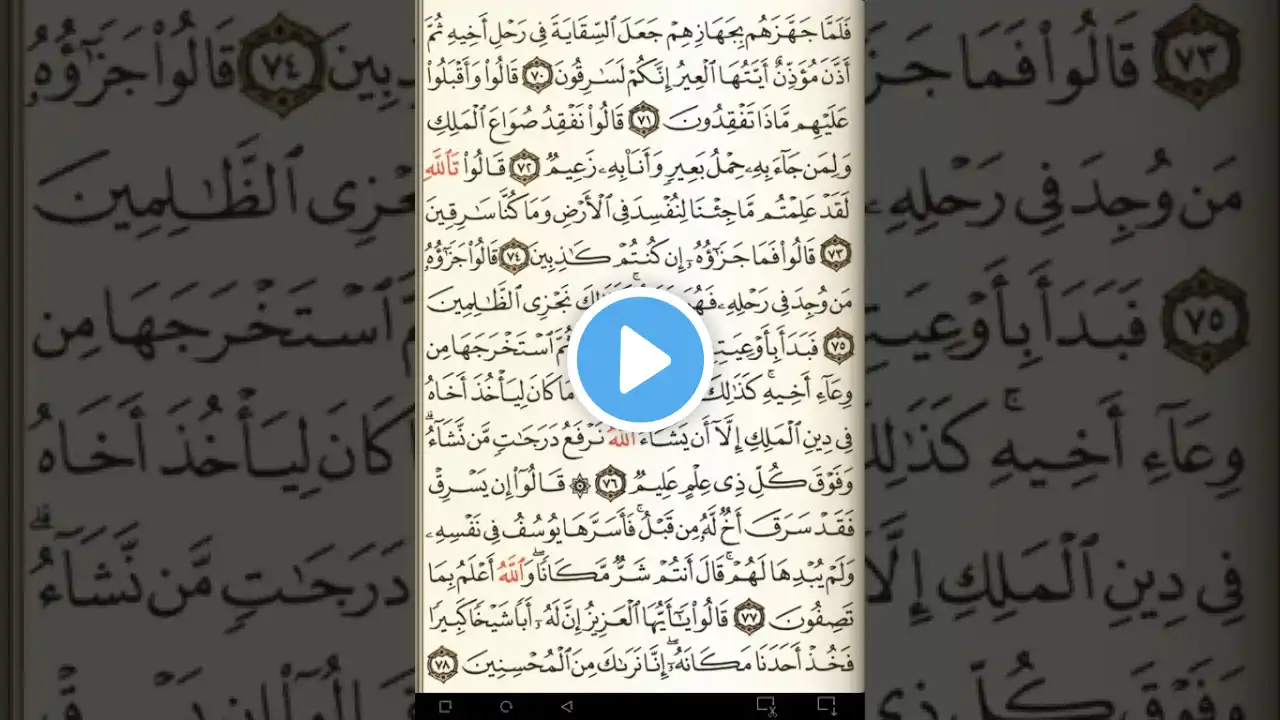 فَلَمَّا جَهَّزَهُم بِجَهَازِهِمْ جَعَلَ ٱلسِّقَايَةَ فِى رَحْلِ أَخِيهِ ثُمَّ
أَذَّنَ مُؤَذِّنٌ أَيَّتُهَا ٱلْعِيرُ إِنَّكُمْ لَسَـٰرِقُونَ ٧٠ قَالُوا۟ وَأَقْبَلُوا۟
عَلَيْهِم مَّاذَا تَفْقِدُونَ ٧١ قَالُوا۟ نَفْقِدُ صُوَاعَ ٱلْمَلِكِ
وَلِمَن جَآءَ بِهِۦ حِمْلُ بَعِيرٍ وَأَنَا۠ بِهِۦ زَعِيمٌ ٧٢ قَالُوا۟ تَٱللَّهِ
لَقَدْ عَلِمْتُم مَّا جِئْنَا لِنُفْسِدَ فِى ٱلْأَرْضِ وَمَا كُنَّا سَـٰرِقِينَ
٧٣ قَالُوا۟ فَمَا جَزَٰٓؤُهُۥٓ إِن كُنتُمْ كَـٰذِبِينَ ٧٤ قَالُوا۟ جَزَٰٓؤُهُۥ
مَن وُجِدَ فِى رَحْلِهِۦ نَجْزِى ٱلظَّـٰلِمِينَ
٧٥ فَبَدَأَ ثُمَّ ٱسْتَخْرَجَهَا مِن
وِعَآءِ أَخِيهِ ۚ كَذَٰلِكَ مَا كَانَ لِيَأْخُذَ أَخَاهُ
فِى دِينِ ٱلْمَلِكِ إِلَّآ أَن يَشَآءَ ٱللَّهُ ۚ نَرْفَعُ دَرَجَـٰتٍ مَّن نَّشَآءُ ۗ
وَفَوْقَ كُلِّ ذِى عِلْمٍ عَلِيمٌ ٧٦ ۞ قَالُوٓا۟ إِن يَسْرِقْ
فَقَدْ سَرَقَ أَخٌ لَّهُۥ مِن قَبْلُ ۚ فَأَسَرَّهَا يُوسُفُ فِى نَفْسِهِۦ
وَلَمْ يُبْدِهَا لَهُمْ ۚ قَالَ أَنتُمْ شَرٌّ مَّكَانًا ۖ وَٱللَّهُ أَعْلَمُ بِمَا
تَصِفُونَ ٧٧ قَالُوا۟ يَـٰٓأَيُّهَا ٱلْعَزِيزُ إِنَّ لَهُۥٓ أَبًا شَيْخًا كَبِيرًا
فَخُذْ أَحَدَنَا مَكَانَهُۥٓ ۖ إِنَّا نَرَىٰكَ مِنَ ٱلْمُحْسِنِينَ ٧٨